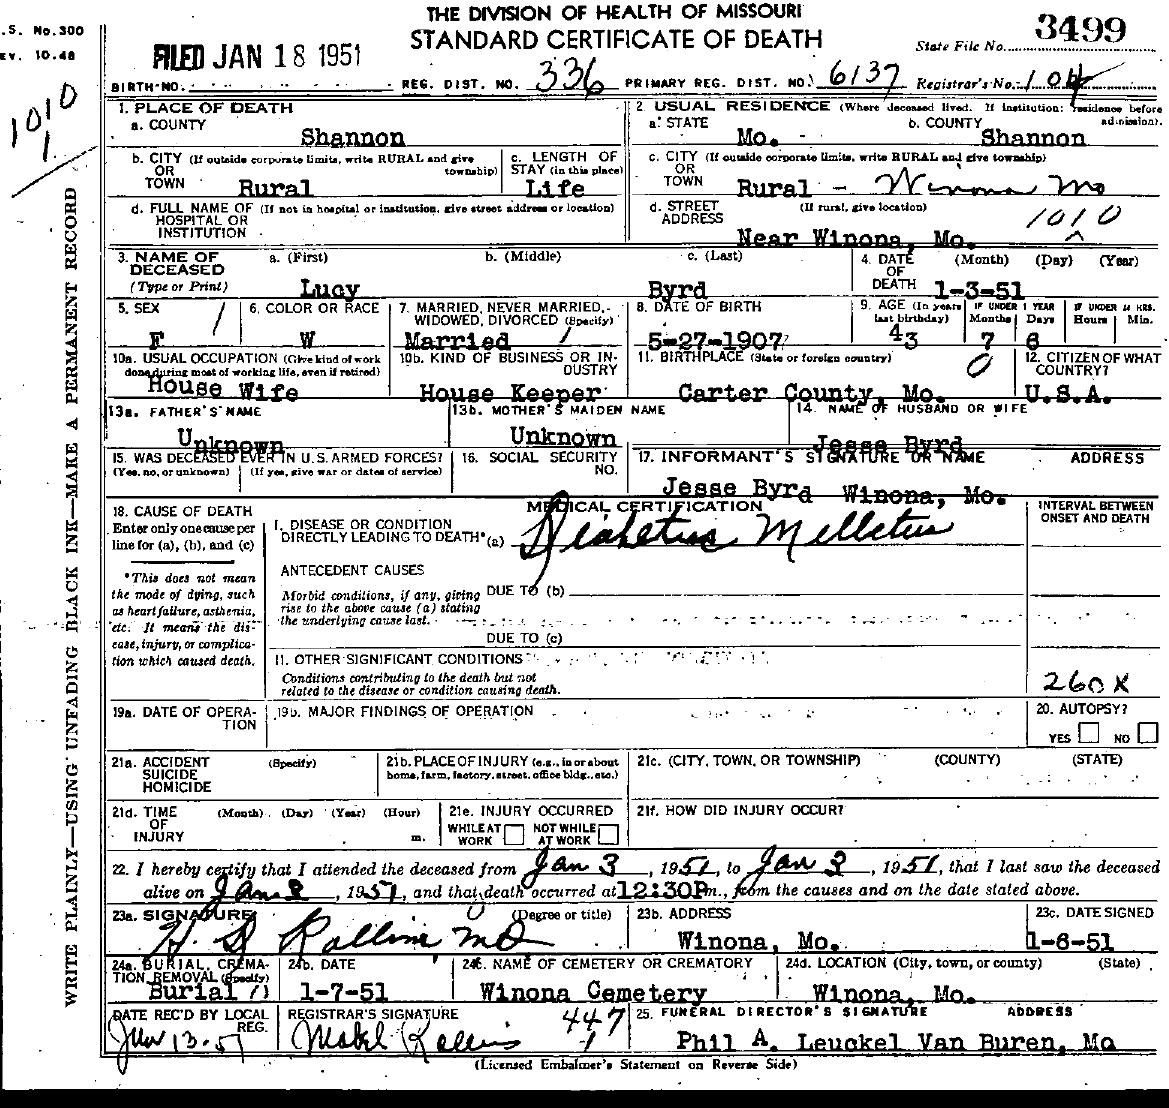 THE DIVISION OF HEALTH OF MISSOURI
STANDARD CERTIFICATE OF DEATH
.S. No.300
EV. 10-48
FILED JAN 18 1951
State File No. 3499
BIRTH NO.
REG. DIST. NO. 336
PRIMARY REG. DIST. NO. 6137
Registrar's No. 104
1010
1
WRITE PLAINLY—USING UNFADING BLACK INK—MAKE A PERMANENT RECORD
1. PLACE OF DEATH
a. COUNTY
Shannon
2. USUAL RESIDENCE (Where deceased lived. If institution: residence before admission).
a. STATE
Mo.
b. COUNTY
Shannon
b. CITY (If outside corporate limits, write RURAL and give township)
OR
TOWN
Rural
c. LENGTH OF
STAY (in this place)
Life
c. CITY (If outside corporate limits, write RURAL and give township)
OR
TOWN
Rural - Winona Mo
d. FULL NAME OF (If not in hospital or institution, give street address or location)
HOSPITAL OR
INSTITUTION
d. STREET
ADDRESS
(If rural, give location)
1010
Near Winona, Mo.
3. NAME OF
DECEASED
(Type or Print)
a. (First)
Lucy
b. (Middle)
c. (Last)
Byrd
4. DATE
OF
DEATH
(Month) (Day) (Year)
1-3-51
5. SEX
F
1
6. COLOR OR RACE
W
7. MARRIED, NEVER MARRIED,
WIDOWED, DIVORCED (Specify)
Married
1
8. DATE OF BIRTH
5-27-1907
9. AGE (In years last birthday)
43
IF UNDER 1 YEAR
Months Days
7 6
IF UNDER 24 HRS.
Hours Min.
10a. USUAL OCCUPATION (Give kind of work
done during most of working life, even if retired)
House Wife
10b. KIND OF BUSINESS OR IN-
DUSTRY
House Keeper
11. BIRTHPLACE (State or foreign country)
Carter County, Mo.
0
12. CITIZEN OF WHAT
COUNTRY?
U.S.A.
13a. FATHER'S NAME
Unknown
13b. MOTHER'S MAIDEN NAME
Unknown
14. NAME OF HUSBAND OR WIFE
Jesse Byrd
15. WAS DECEASED EVER IN U.S. ARMED FORCES?
(Yes, no, or unknown) (If yes, give war or dates of service)
16. SOCIAL SECURITY
NO.
17. INFORMANT'S SIGNATURE OR NAME ADDRESS
Jesse Byrd Winona, Mo.
18. CAUSE OF DEATH
Enter only one cause per
line for (a), (b), and (c)
*This does not mean
the mode of dying, such
as heart failure, asthenia,
etc. It means the dis-
ease, injury, or complica-
tion which caused death.
MEDICAL CERTIFICATION
I. DISEASE OR CONDITION
DIRECTLY LEADING TO DEATH*(a) Diabetus Melletus
ANTECEDENT CAUSES
Morbid conditions, if any, giving
rise to the above cause (a) stating
the underlying cause last.
DUE TO (b)
DUE TO (c)
II. OTHER SIGNIFICANT CONDITIONS
Conditions contributing to the death but not
related to the disease or condition causing death.
INTERVAL BETWEEN
ONSET AND DEATH
260 X
19a. DATE OF OPERA-
TION
19b. MAJOR FINDINGS OF OPERATION
20. AUTOPSY?
YES NO
21a. ACCIDENT
SUICIDE
HOMICIDE
(Specify)
21b. PLACE OF INJURY (e.g., in or about
home, farm, factory, street, office bldg., etc.)
21c. (CITY, TOWN, OR TOWNSHIP) (COUNTY) (STATE)
21d. TIME
OF
INJURY
(Month) (Day) (Year) (Hour)
m.
21e. INJURY OCCURRED
WHILE AT
WORK
NOT WHILE
AT WORK
21f. HOW DID INJURY OCCUR?
22. I hereby certify that I attended the deceased from Jan 3, 1951, to Jan 3, 1951, that I last saw the deceased
alive on Jan 3, 1951, and that death occurred at 12:30P m., from the causes and on the date stated above.
23a. SIGNATURE (Degree or title)
H D Rollins MD
23b. ADDRESS
Winona, Mo.
23c. DATE SIGNED
1-6-51
24a. BURIAL, CREMA-
TION, REMOVAL (Specify)
Burial
24b. DATE
1-7-51
24c. NAME OF CEMETERY OR CREMATORY
Winona Cemetery
24d. LOCATION (City, town, or county) (State)
Winona, Mo.
DATE REC'D BY LOCAL
REG.
Jan 13-51
REGISTRAR'S SIGNATURE
Mabel Rollins
447
1
25. FUNERAL DIRECTOR'S SIGNATURE ADDRESS
Phil A. Leuckel Van Buren, Mo
(Licensed Embalmer's Statement on Reverse Side)